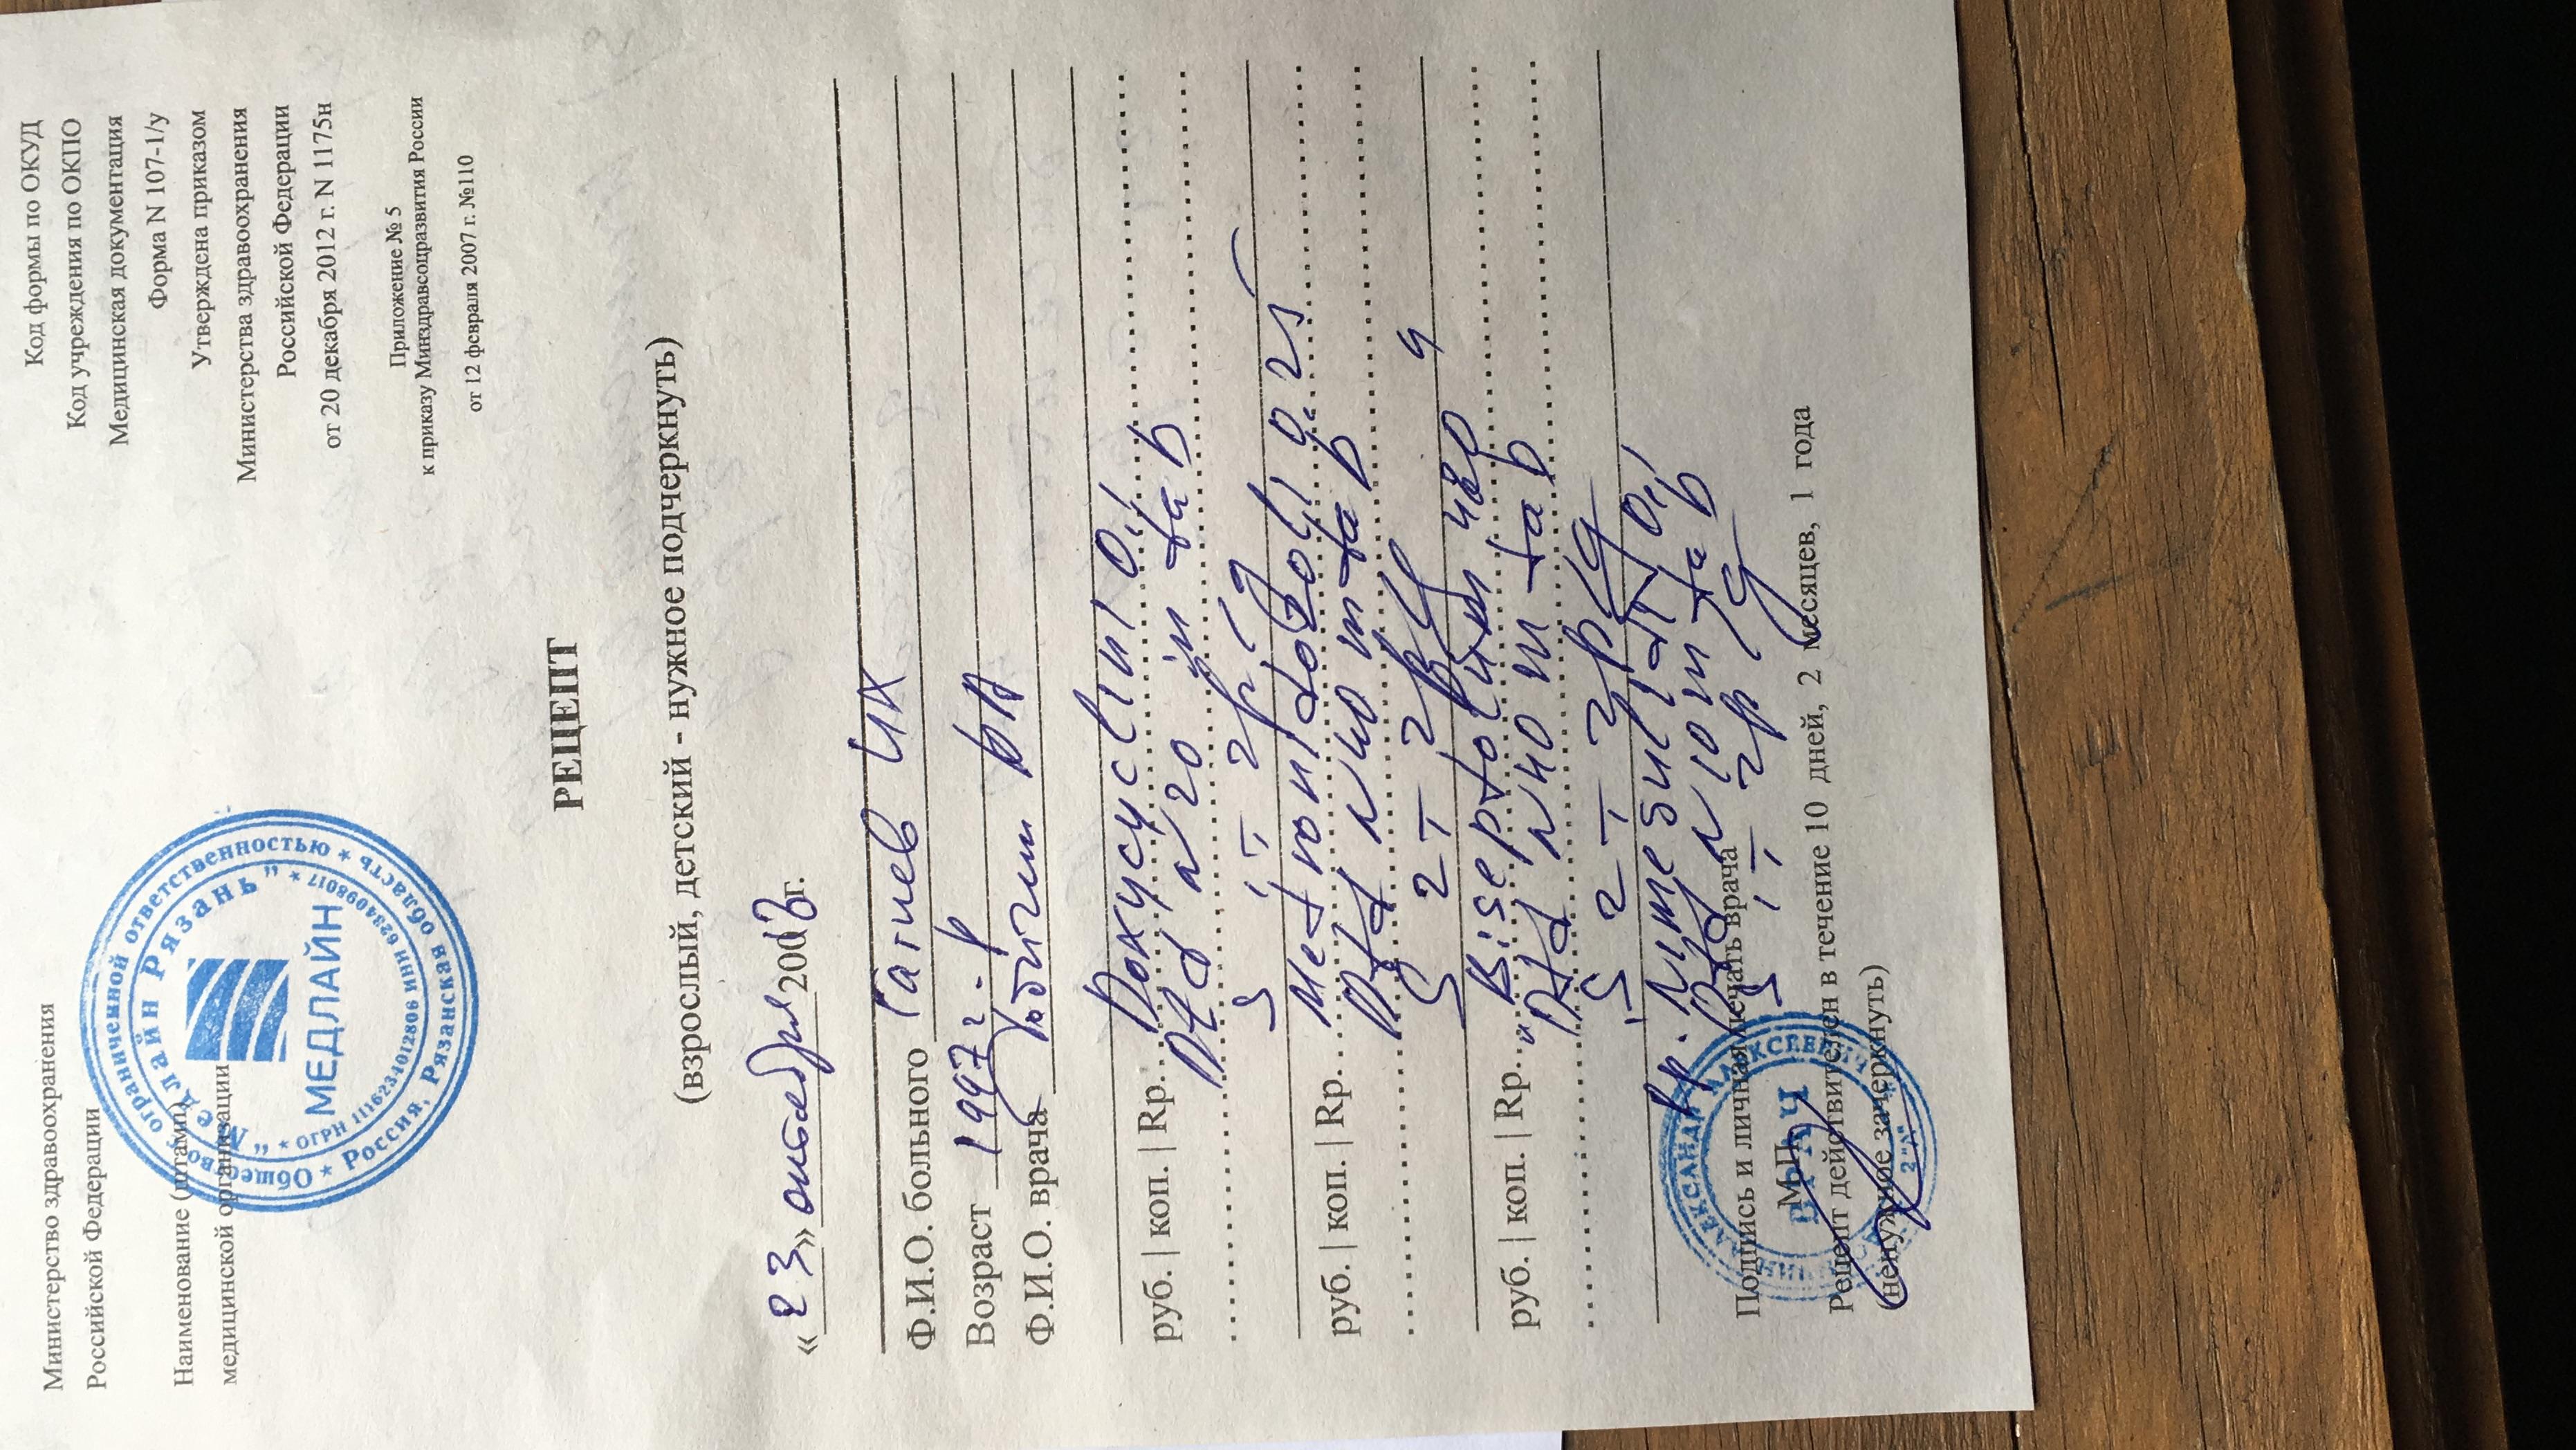 Министерство здравоохранения
Российской Федерации
Наименование (штамп)
медицинской организации
Общество с ограниченной ответственностью * Россия, Рязанская область *
"Медлайн Рязань"
* ОГРН 1116234012806 ИНН 6234098017 *
МЕДЛАЙН
Код формы по ОКУД
Код учреждения по ОКПО
Медицинская документация
Форма N 107-1/у
Утверждена приказом
Министерства здравоохранения
Российской Федерации
от 20 декабря 2012 г. N 1175н
Приложение № 5
к приказу Минздравсоцразвития России
от 12 февраля 2007 г. №110
РЕЦЕПТ
(взрослый, детский - нужное подчеркнуть)
«23» октября 200 г.
Ф.И.О. больного Гатиев ИХ
Возраст 1997 г.р
Ф.И.О. врача
руб. | коп. | Rp. Doxycyclini 0.1
Dtd N 20 in tab
S 1T 2р д
руб. | коп. | Rp. Metronidazoli 0.25
Dtd N 40 in tab
S 2T 2р д
руб. | коп. | Rp. Biseptolum 480
Dtd N 40 in tab
S 2T 2р д
Rp. Nimesulidi 0.1
Dtd N 10 in tab
S 1T 2р д
Подпись и личная печать врача
М.П.
ВРАЧ
Рецепт действителен в течение 10 дней, 2 месяцев, 1 года
(ненужное зачеркнуть)